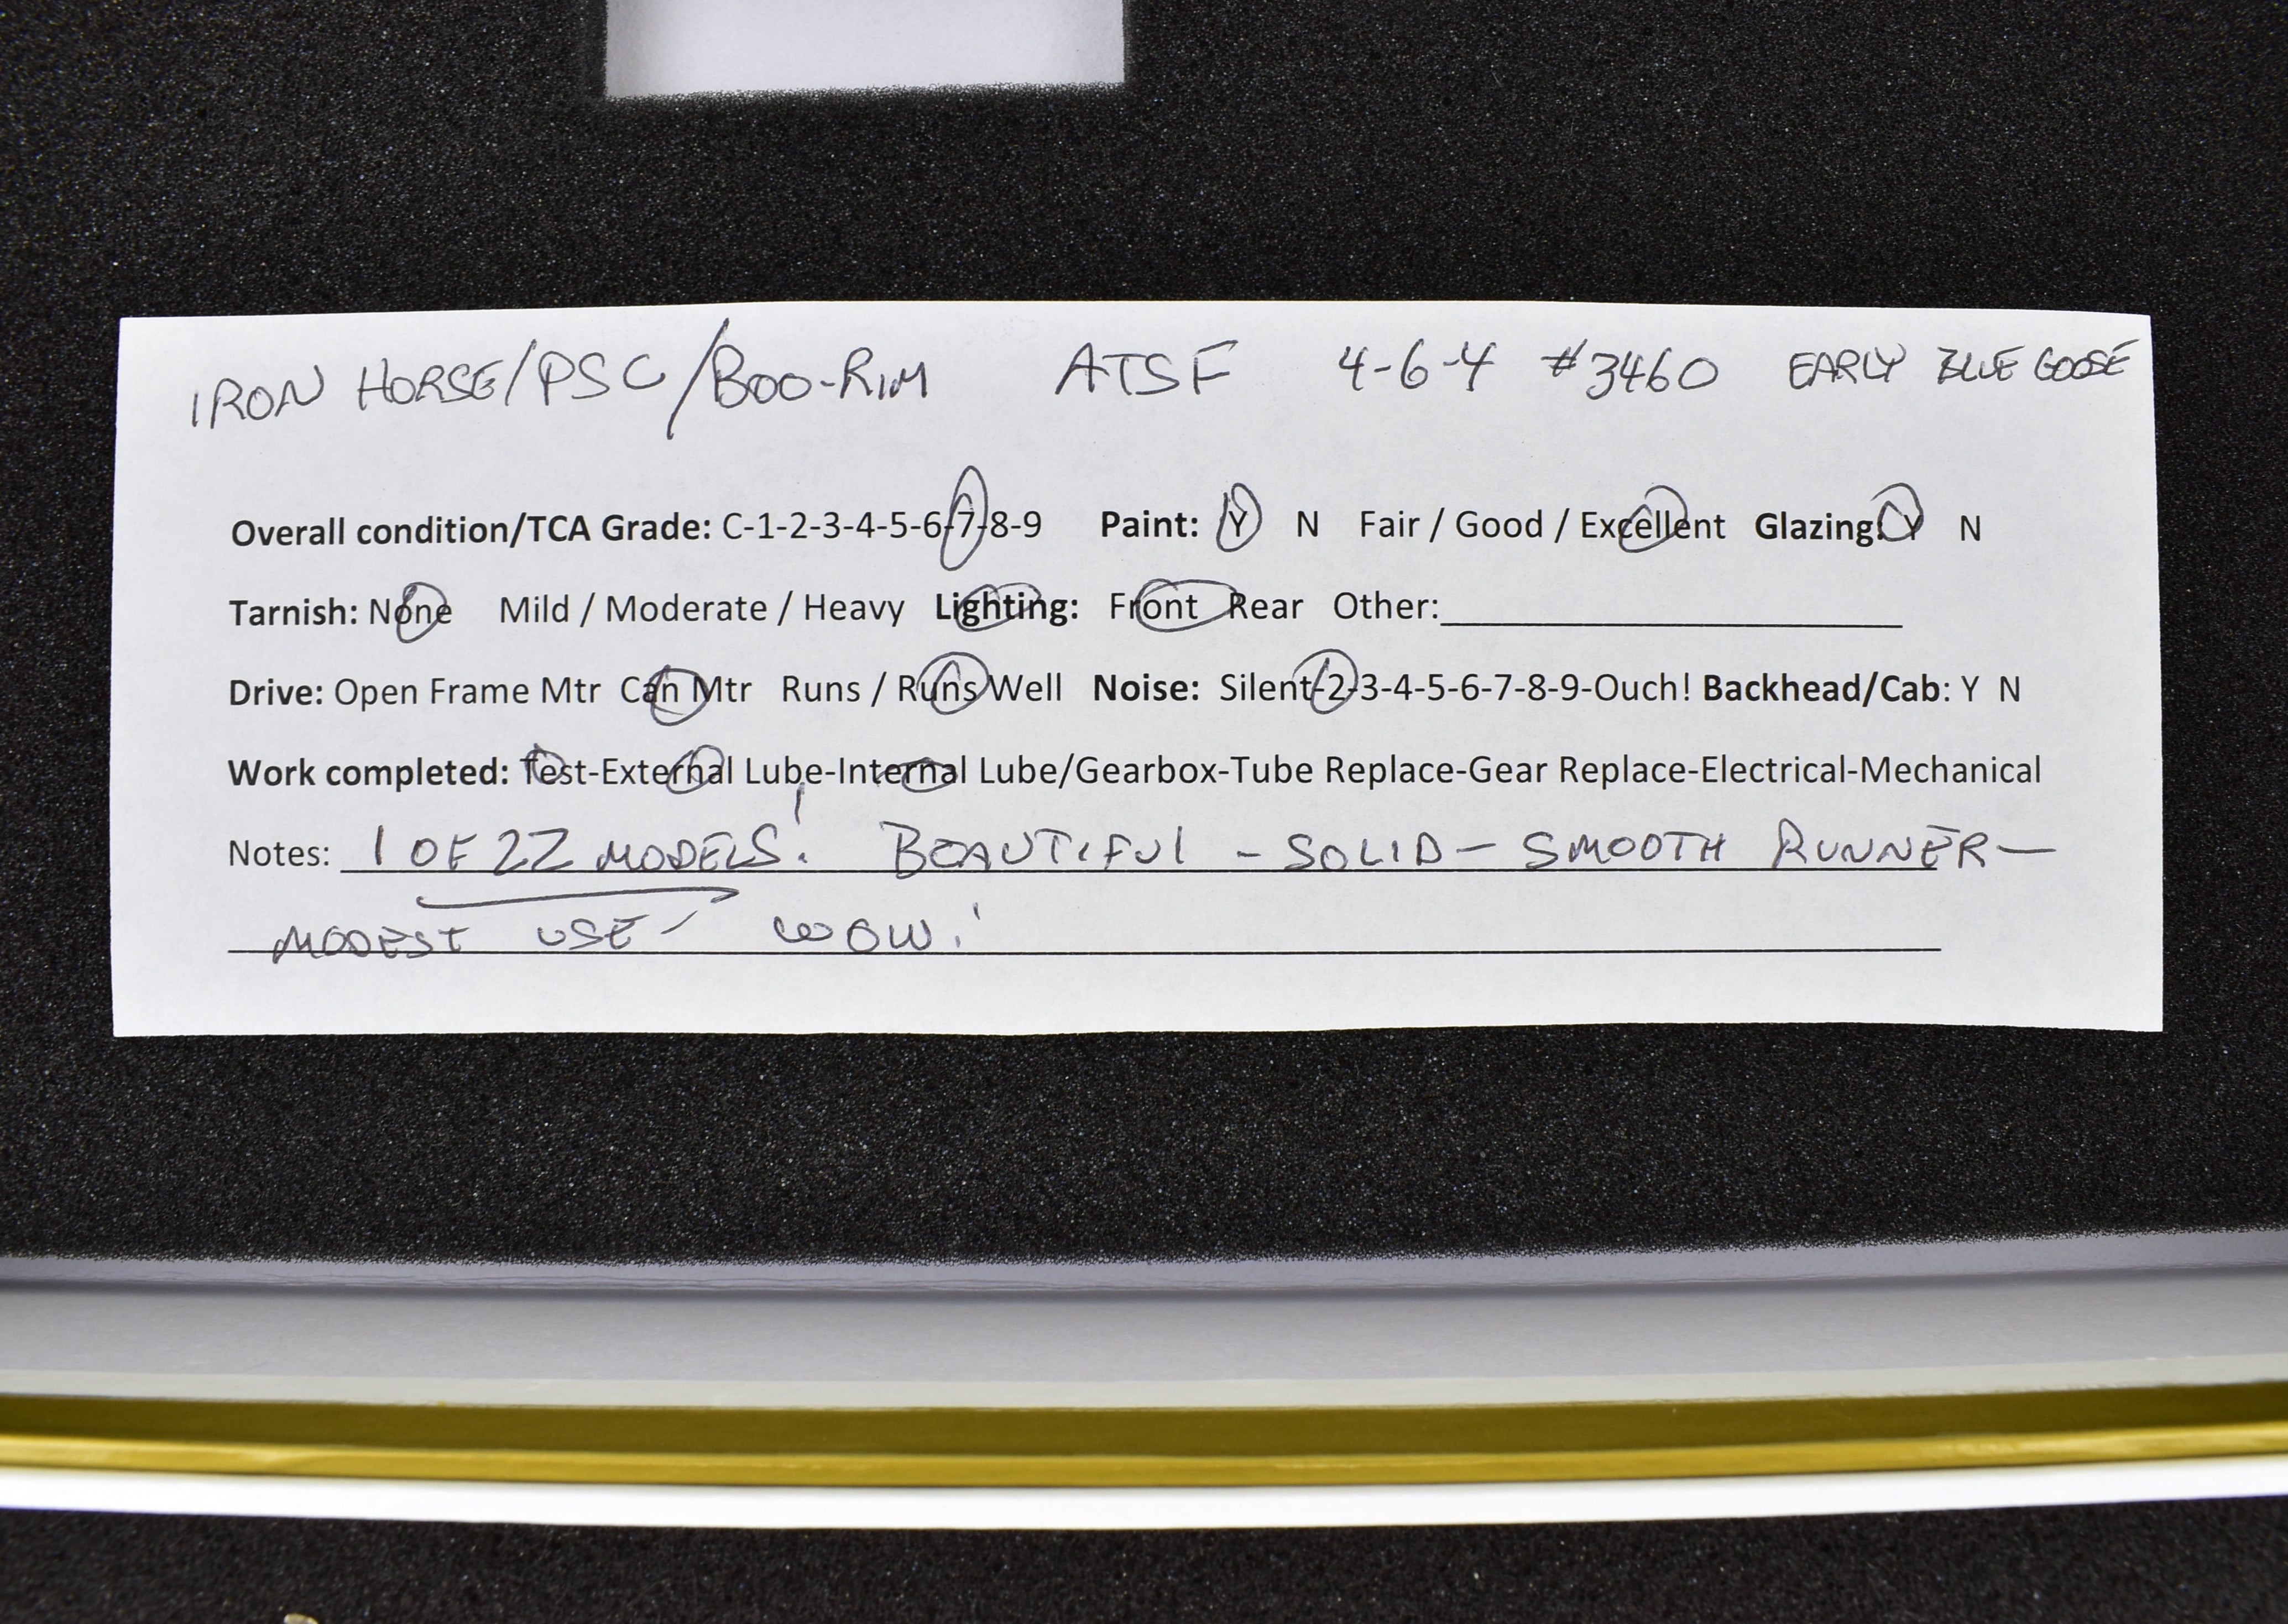 IRON HORSE/PSC/BOO-RIM ATSF 4-6-4 #3460 EARLY BLUE GOOSE
Overall condition/TCA Grade: C-1-2-3-4-5-6-7-8-9 Paint: Y N Fair / Good / Excellent Glazing: Y N
Tarnish: None Mild / Moderate / Heavy Lighting: Front Rear Other:
Drive: Open Frame Mtr Can Mtr Runs / Runs Well Noise: Silent-2-3-4-5-6-7-8-9-Ouch! Backhead/Cab: Y N
Work completed: Test-External Lube-Internal Lube/Gearbox-Tube Replace-Gear Replace-Electrical-Mechanical
Notes: 1 OF 22 MODELS! BEAUTIFUL - SOLID - SMOOTH RUNNER -
MODEST USE - WOW!